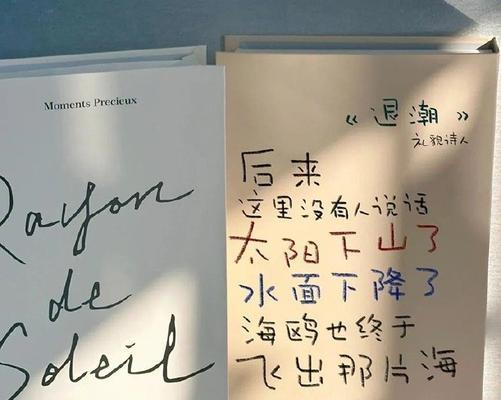 Moments Precieux
Rayon
de
Soleil
《退潮》
礼貌诗人
后来
这里没有人说话
太阳下山了
水面下降了
海鸥也终于
飞出那片海